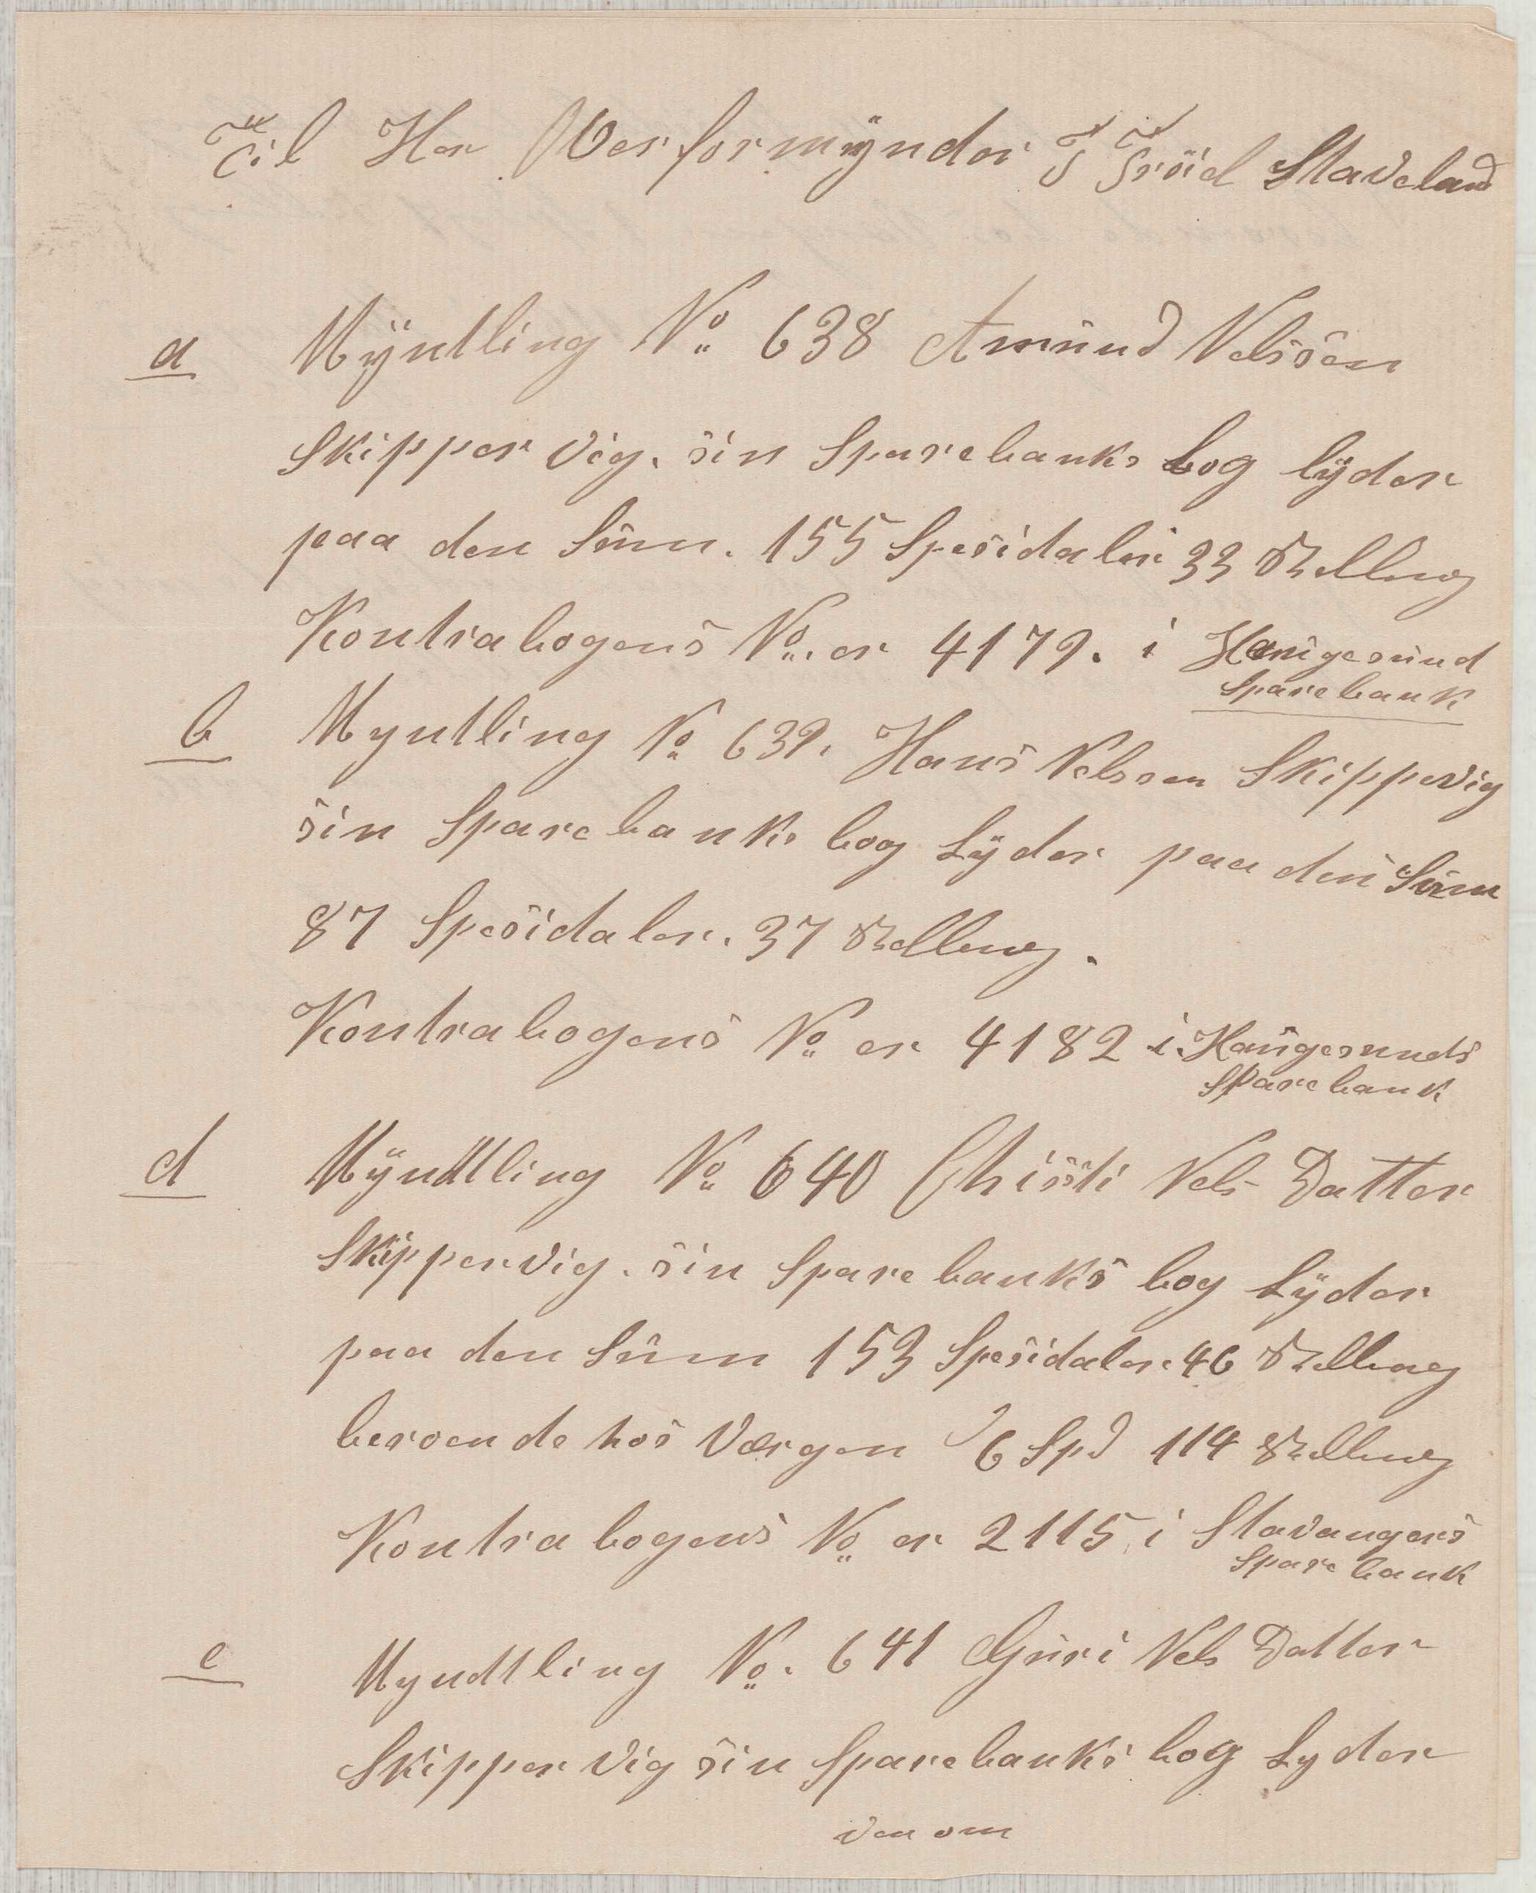 Til Her Overformynder T Tröid Staveland
a Myntling No 638 Amund Nelssen
Skipper vig. sin Sparebanks bog lyder
paa den Sum. 155 Spesidaler 33 Skelleng
Kontrabogens No. er 4179. i Haugesund
Sparebank
b Myntling No 639. Hans Nelssen Skippevig
sin Sparebanks bog Lyder paa den Sum
87 Spesidaler. 37 Skelleng.
Kontrabogens No er 4182 i Haugesunds
Sparebank
d Myndtling No 640 Chisti Nels Datter
Skippervig. sin Sparebanks bog Lyder
paa den Sum 153 Spesidaler. 46 Skelleng
beroende hos Værgen 6 Spd 114 Skelleng
Kontrabogens No er 2115 i Stavangers
Sparebank
e Myndtling No. 641 Guri Nels Datter
Skipper vig sin Sparebanks bog Lyder
ven om